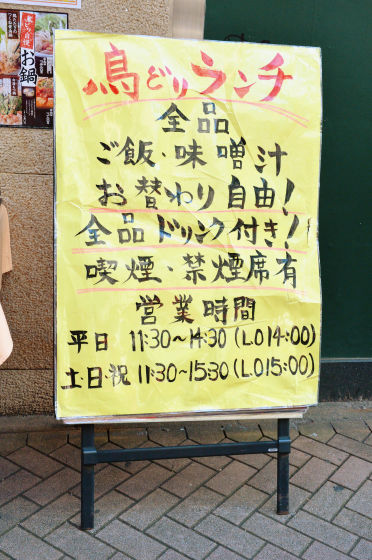 鳥どりランチ
全品
ご飯・味噌汁
お替わり自由!
全品ドリンク付き!
喫煙・禁煙席有
営業時間
平日 11:30〜14:30(L.O14:00)
土・日・祝 11:30〜15:30(L.O15:00)
お鍋